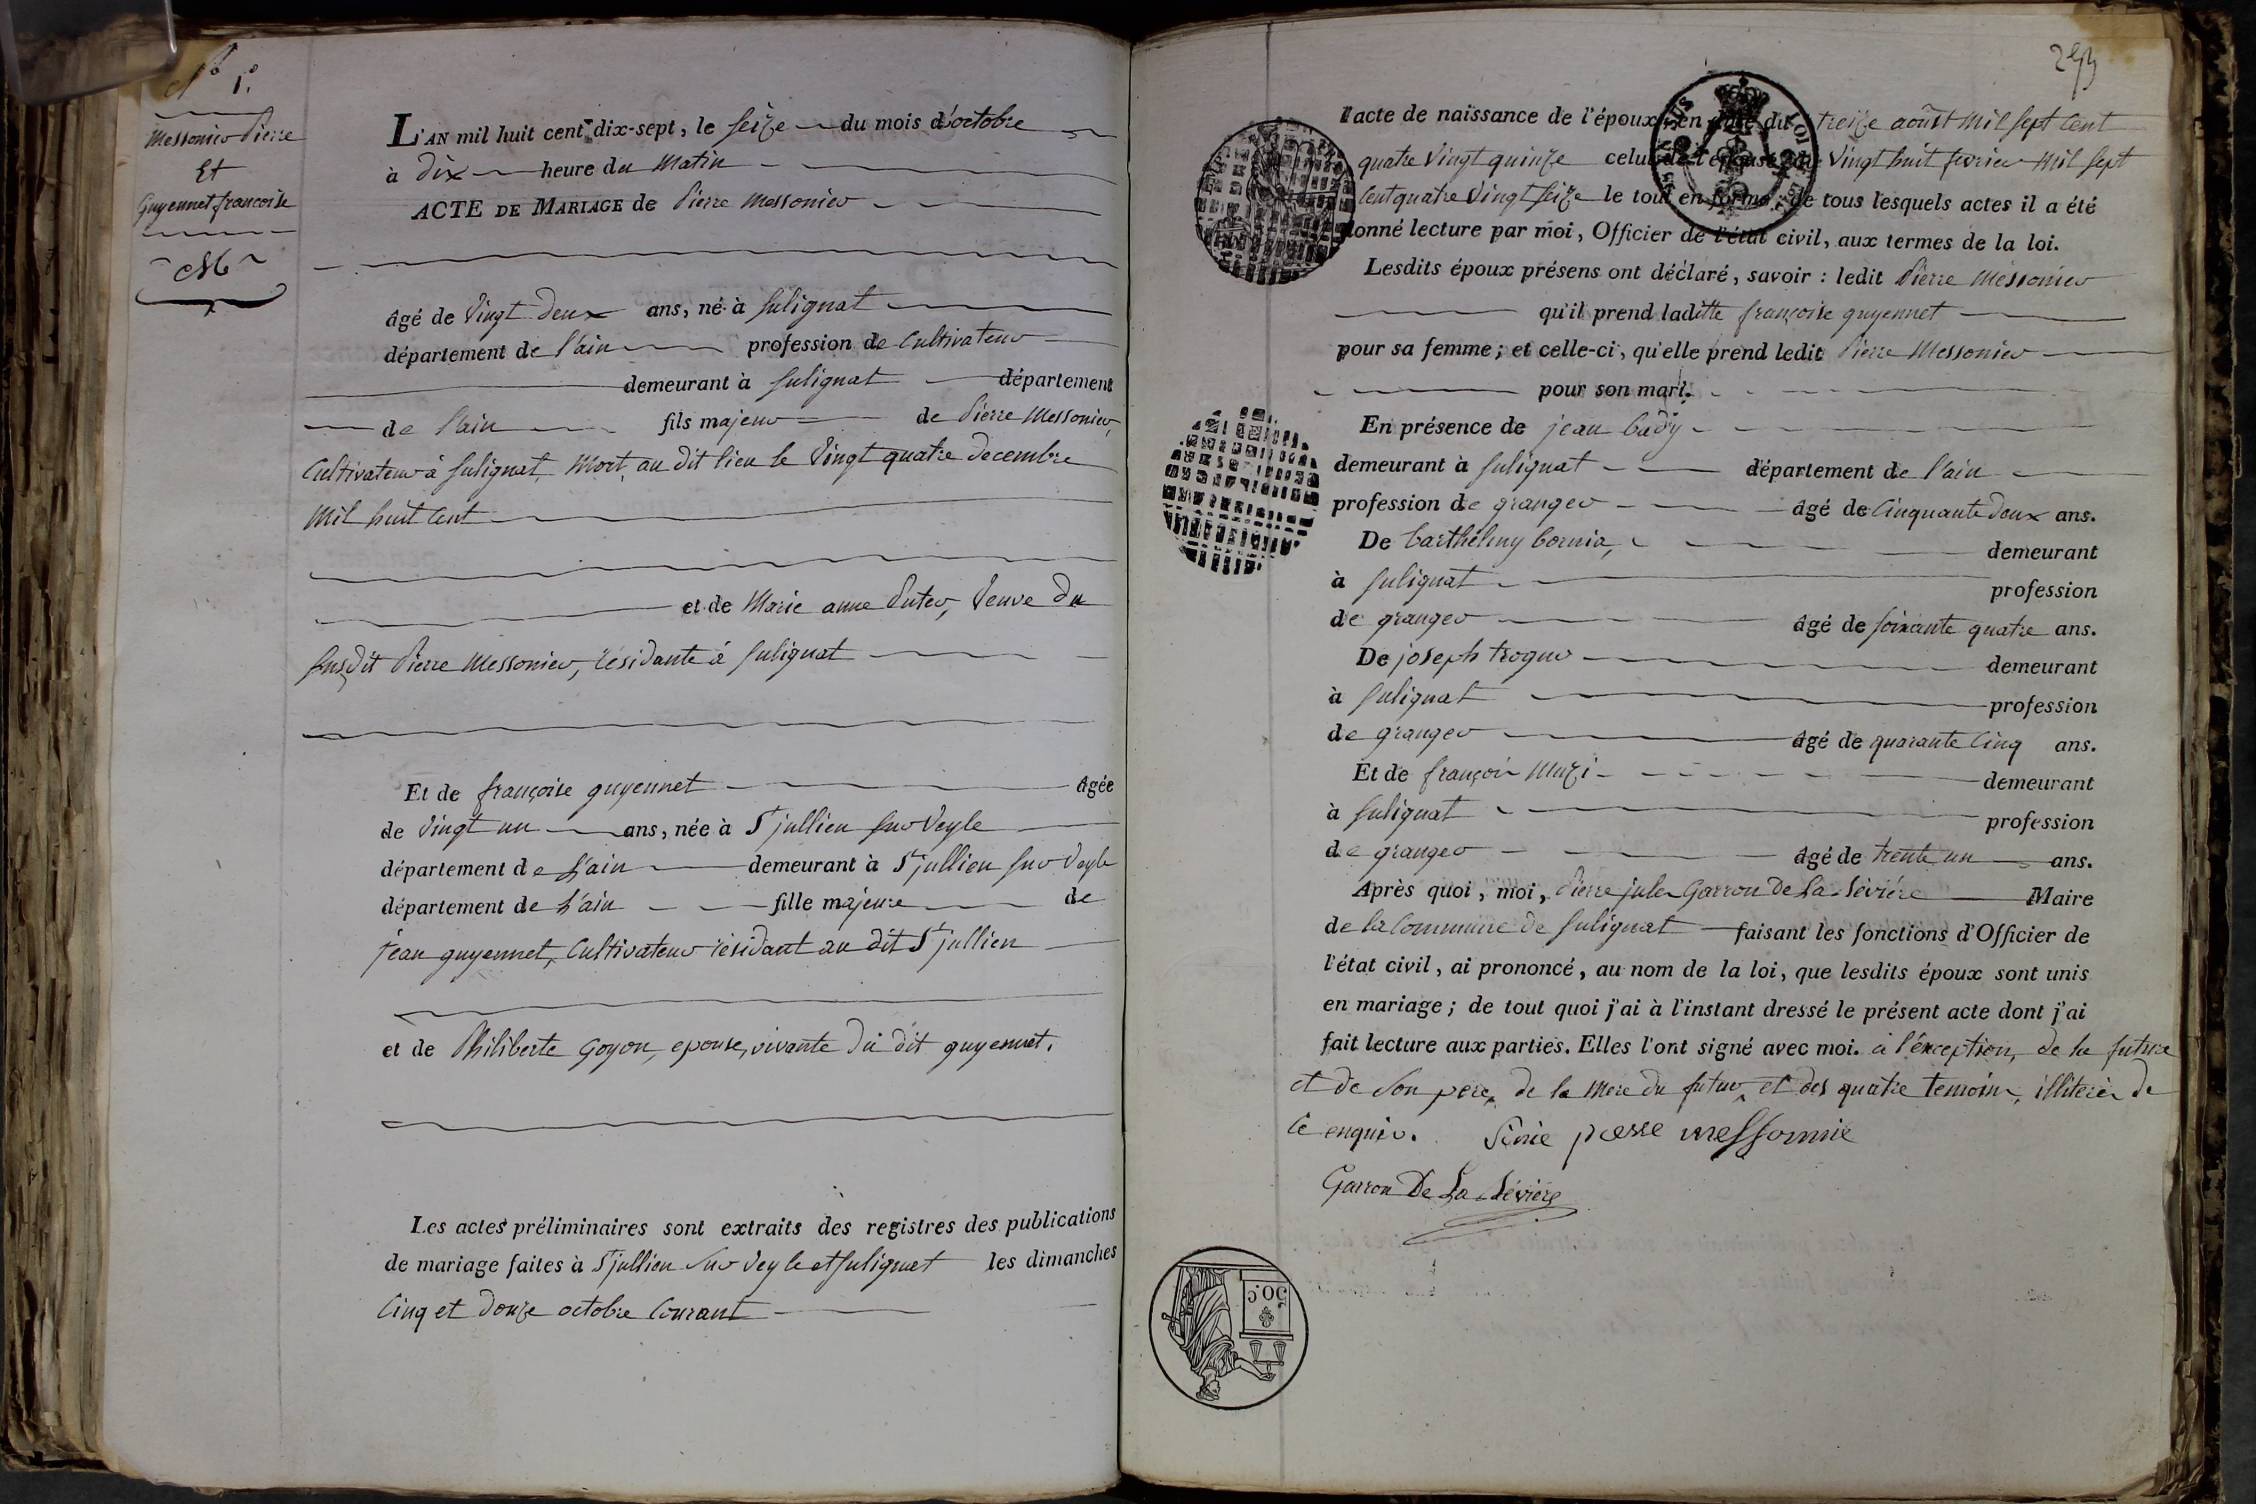 N° 1.
Messonier Pierre
Et
Guyennet francoise
M
L'AN mil huit cent dix-sept, le seize du mois d'octobre
à dix heure du Matin
ACTE DE MARIAGE de Pierre Messonier
âgé de Vingt deux ans, né à Sulignat
département de l'ain profession de Cultivateur
demeurant à Sulignat département
de l'ain fils majeur de Pierre Messonier,
Cultivateur à Sulignat, Mort au dit lieu le Vingt quatre decembre
Mil huit Cent
et de Marie anne Duter, Veuve du
susdit Pierre Messonier, résidante à Sulignat
Et de françoise guyennet âgée
de Vingt un ans, née à St jullien sur Veyle
département de L'ain demeurant à St jullien sur Veyle
département de L'ain fille majeure de
jean guyennet, Cultivateur résidant au dit St jullien
et de Philiberte Goyon, epouse, vivante du dit guyennet.
Les actes préliminaires sont extraits des registres des publications
de mariage faites à St jullien sur Veyle et Sulignat les dimanches
Cinq et douze octobre Courant
253
l'acte de naissance de l'époux en date du treize aoust Mil sept Cent
quatre Vingt quinze celui de l'épouse du Vingt huit fevrier Mil sept
Cent quatre Vingt seize le tout en forme; de tous lesquels actes il a été
donné lecture par moi, Officier de l'état civil, aux termes de la loi.
Lesdits époux présens ont déclaré, savoir : ledit Pierre Messonier
qu'il prend laditte françoise guyennet
pour sa femme; et celle-ci, qu'elle prend ledit Pierre Messonier
pour son mari.
En présence de jean bady
demeurant à Sulignat département de l'ain
profession de granger âgé de Cinquante deux ans.
De barthélmy bornia, demeurant
à Sulignat profession
de granger âgé de soixante quatre ans.
De joseph trogur demeurant
à Sulignat profession
de granger âgé de quarante Cinq ans.
Et de françois Muzi demeurant
à Sulignat profession
de granger âgé de trente un ans.
Après quoi, moi, Pierre jules Garron De La Sévière Maire
de la Commune de Sulignat faisant les fonctions d'Officier de
l'état civil, ai prononcé, au nom de la loi, que lesdits époux sont unis
en mariage; de tout quoi j'ai à l'instant dressé le présent acte dont j'ai
fait lecture aux parties. Elles l'ont signé avec moi. à l'exception, de la future
et de son pere, de la Mere du futur, et des quatre temoins, illiterés de
Ce enquis. Sinie piesse messonnie
Garron De La Sévière
50.C